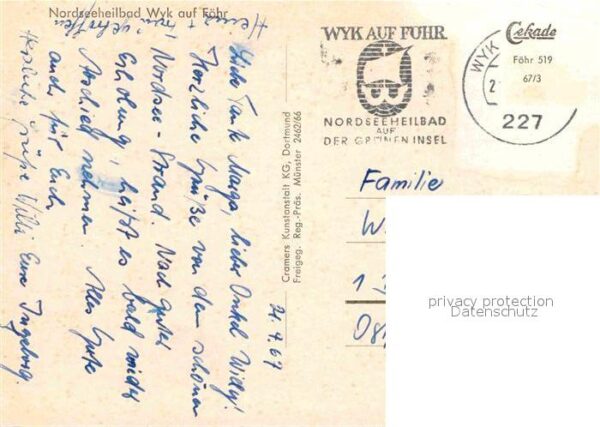 Nordseeheilbad Wyk auf Föhr
Liebe Tante Marga, lieber Onkel Willy!
Herzliche Grüße von dem schönen
Nordsee-Strand. Nach guter
Erholung, heißt es bald wieder
Abschied nehmen. Alles Gute
auch für Euch
Herzliche Grüße Willi Eure Ingeborg.
21.4.67
Cramers Kunstanstalt KG, Dortmund
Freigeg. Reg.-Präs. Münster 2462/66
WYK AUF FÖHR
NORDSEEHEILBAD
AUF
DER GRÜNEN INSEL
WYK
2
227
Cekade
Föhr 519
67/3
Familie
W
1
privacy protection
Datenschutz